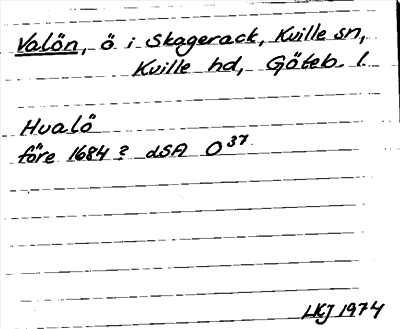 Valön, ö i Skagerack, Kville sn,
Kville hd, Göteb. l.
Hvalö
före 1684? dSA O 37
LKJ 1974